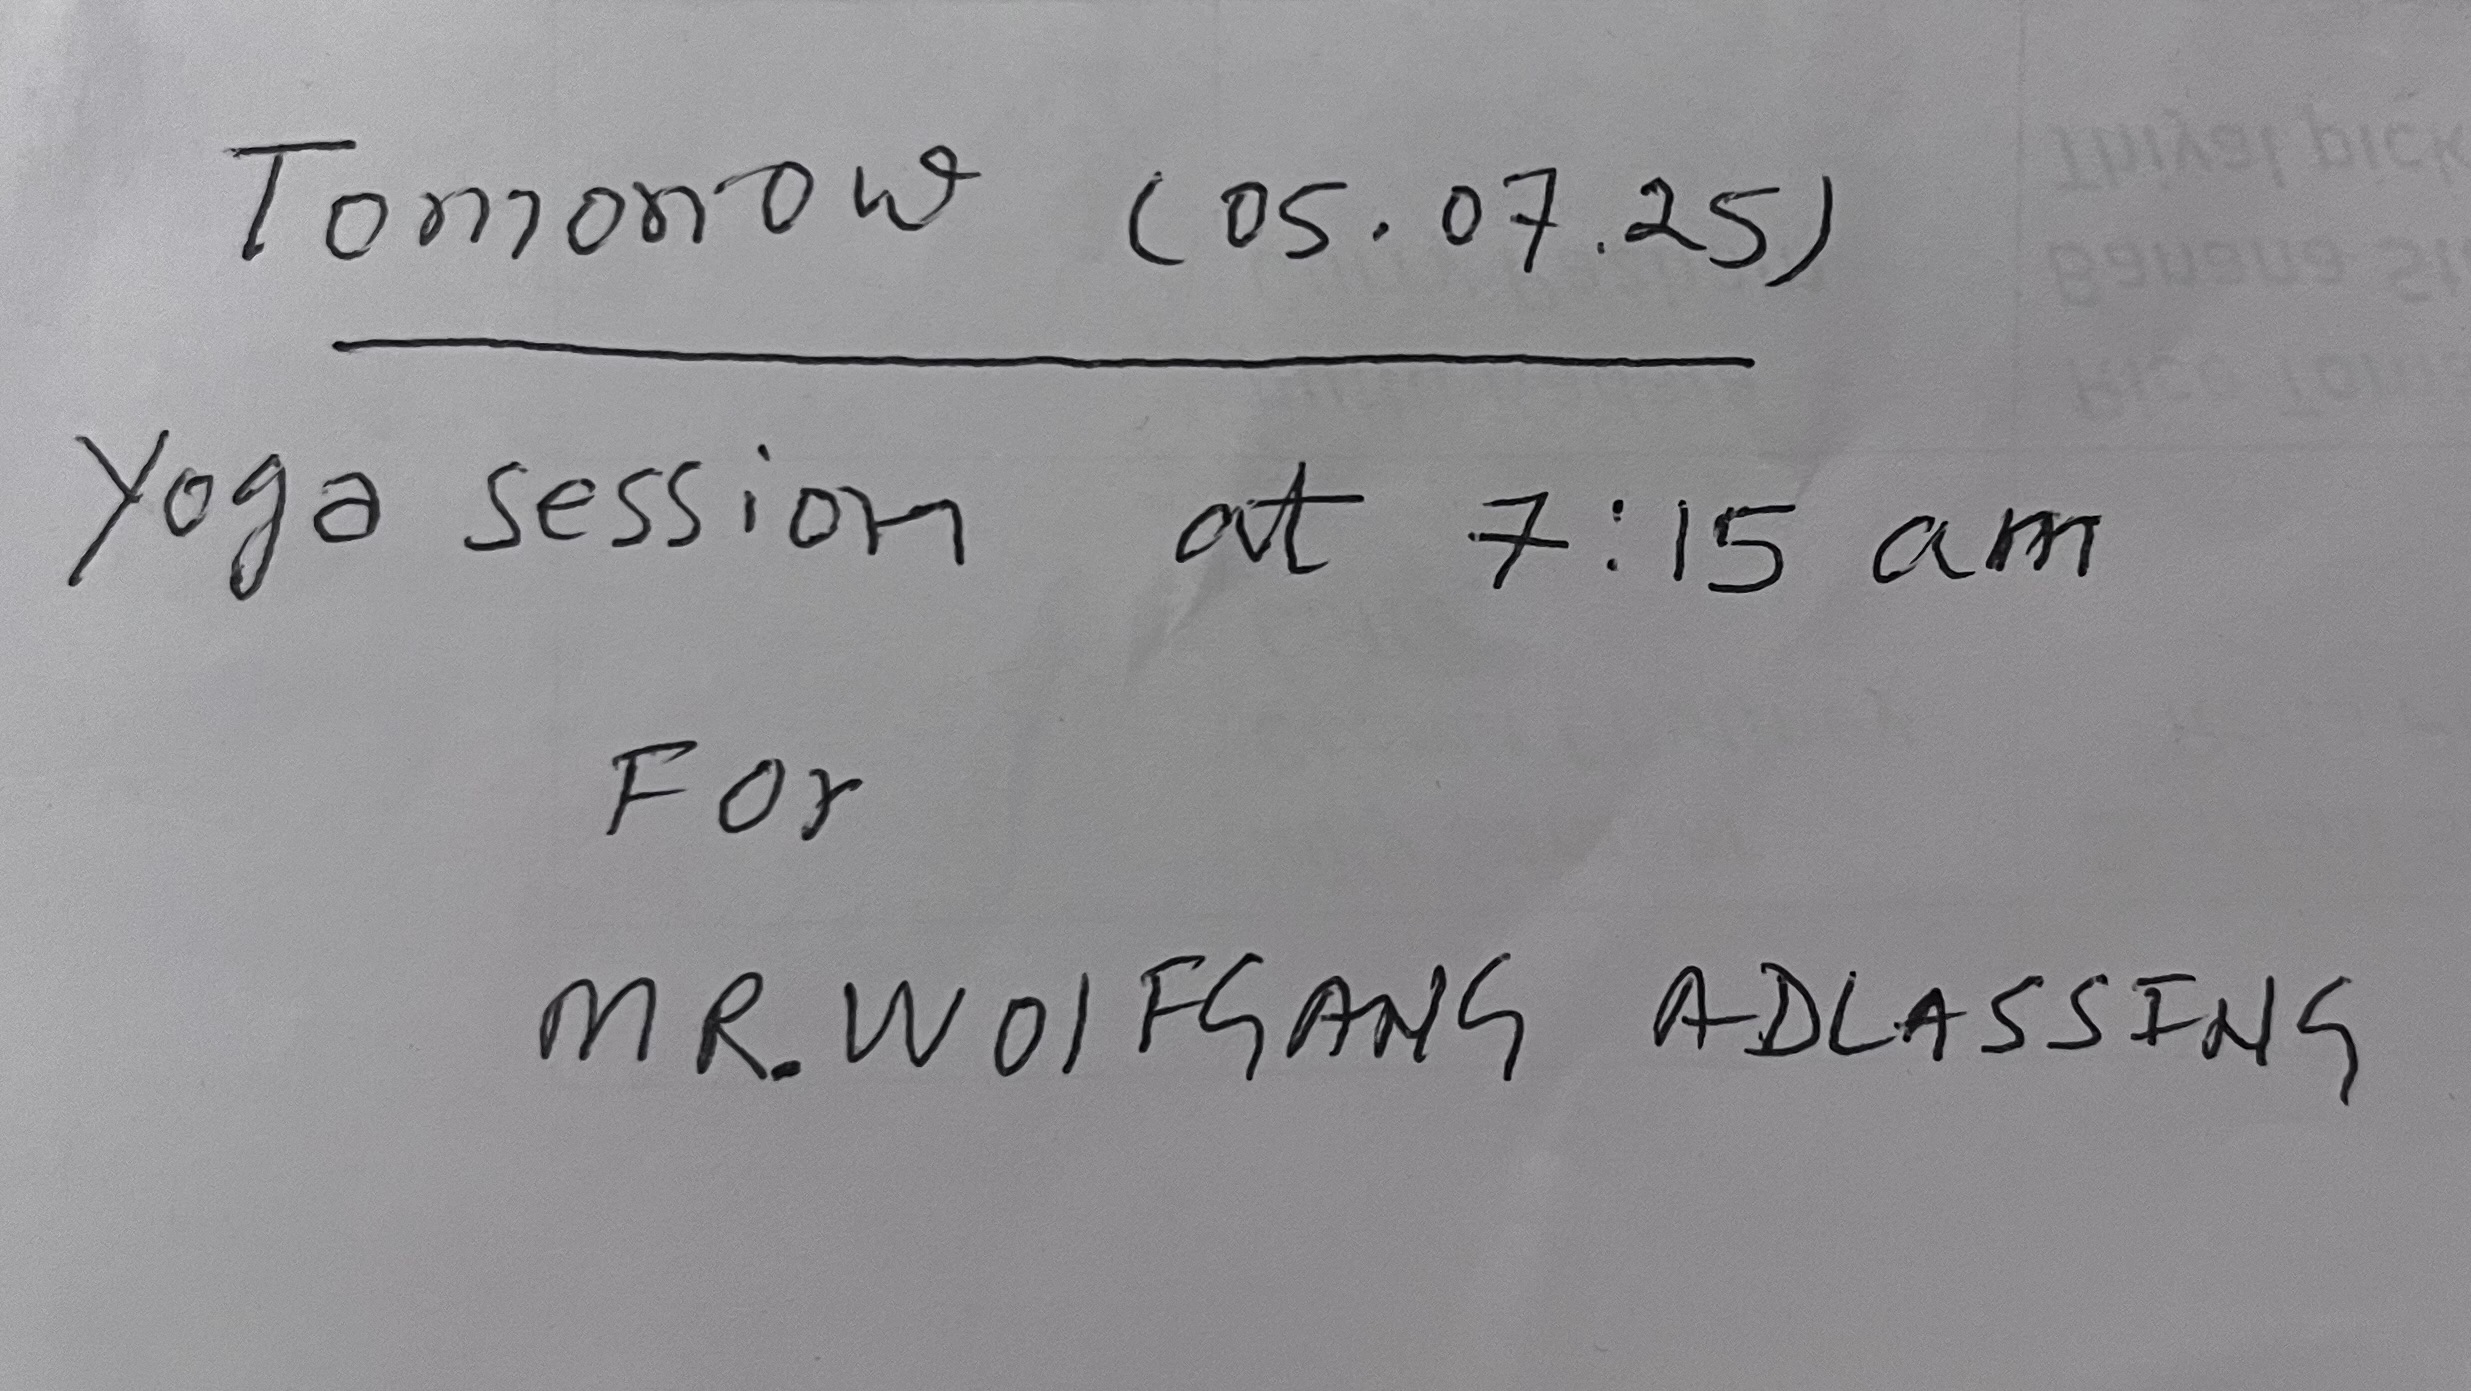 Tomorrow (05.07.25)
Yoga session at 7:15 am
For
MR. WOlFGANG ADLASSING